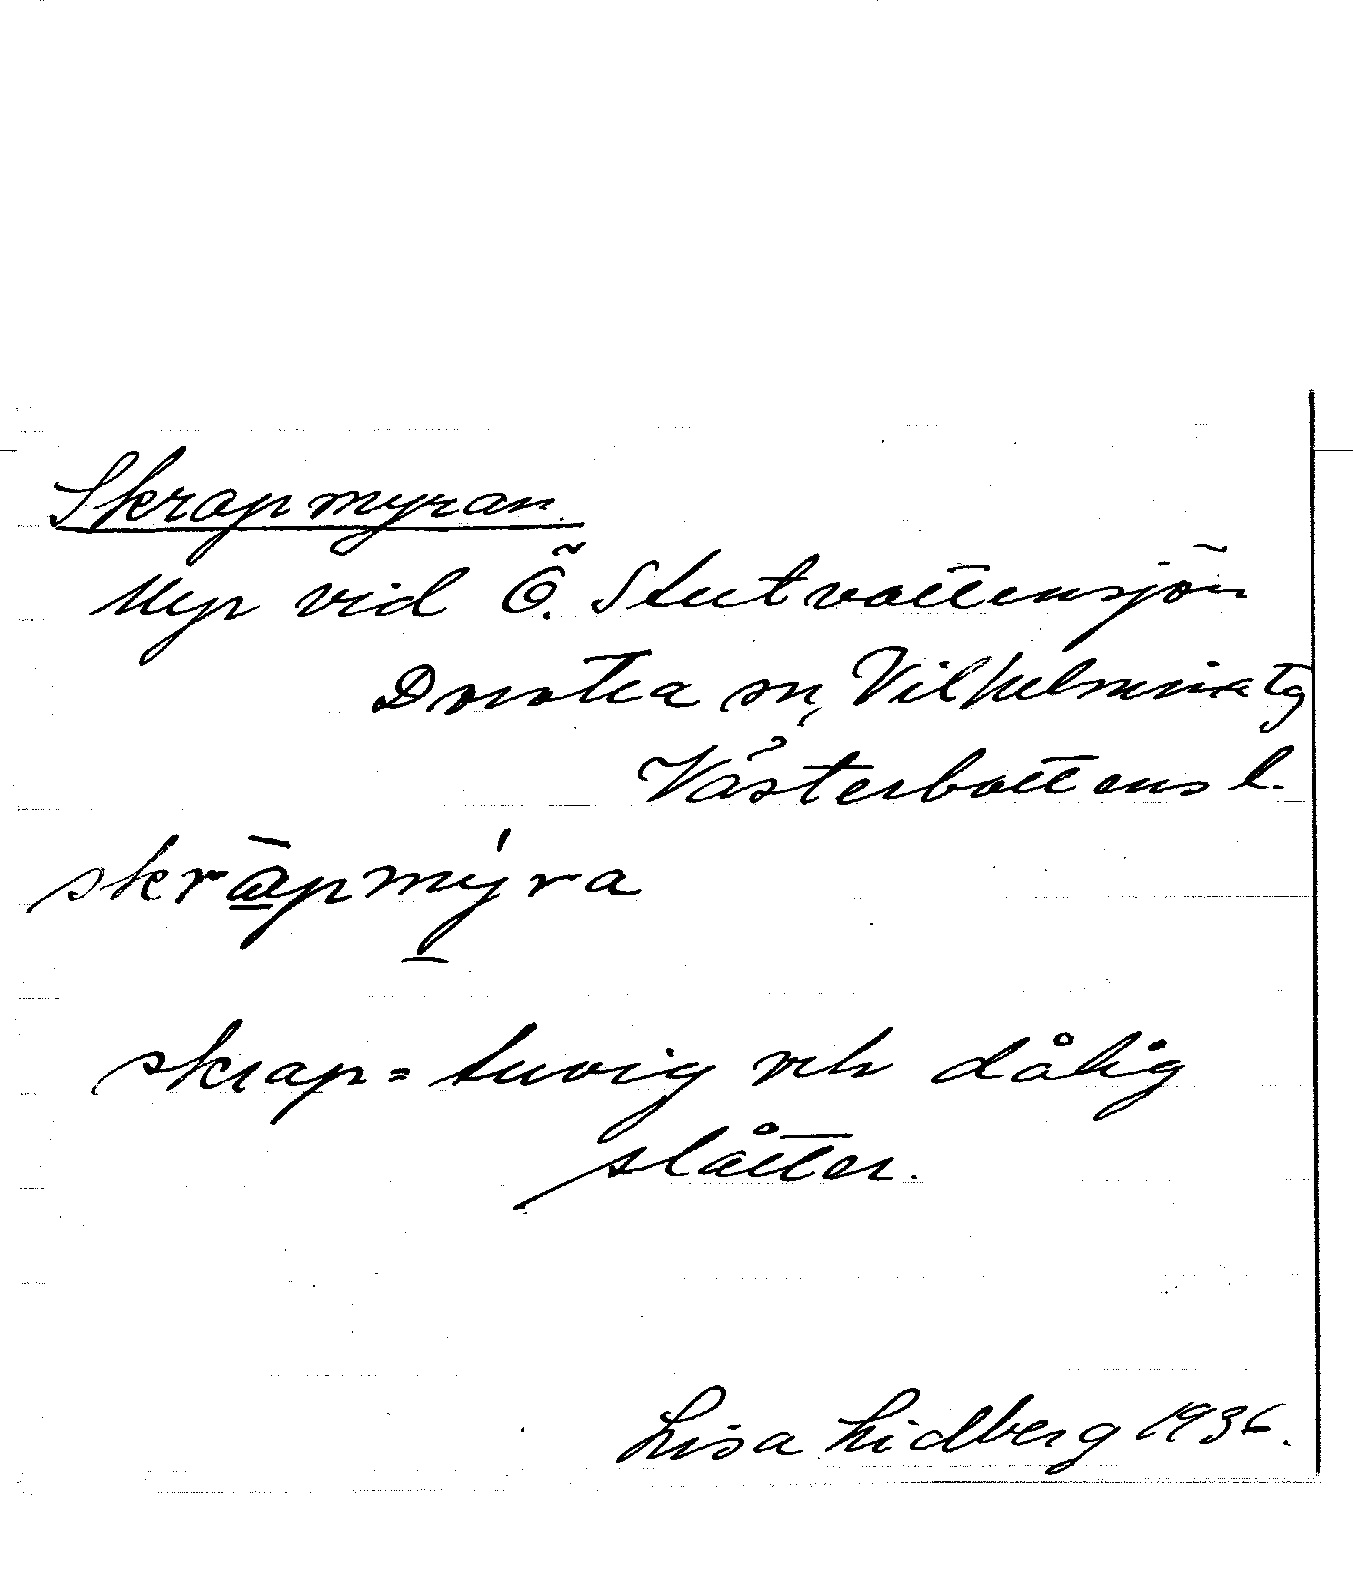 Skrapmyran
Myr vid Ö. Stutvattensjön
Dorotea sn, Vilhelmina tg
Västerbottens l.
skrā̲pmý̲ra
skrap = tuvig och dålig
slåtter.
Lisa Lidberg 1936.